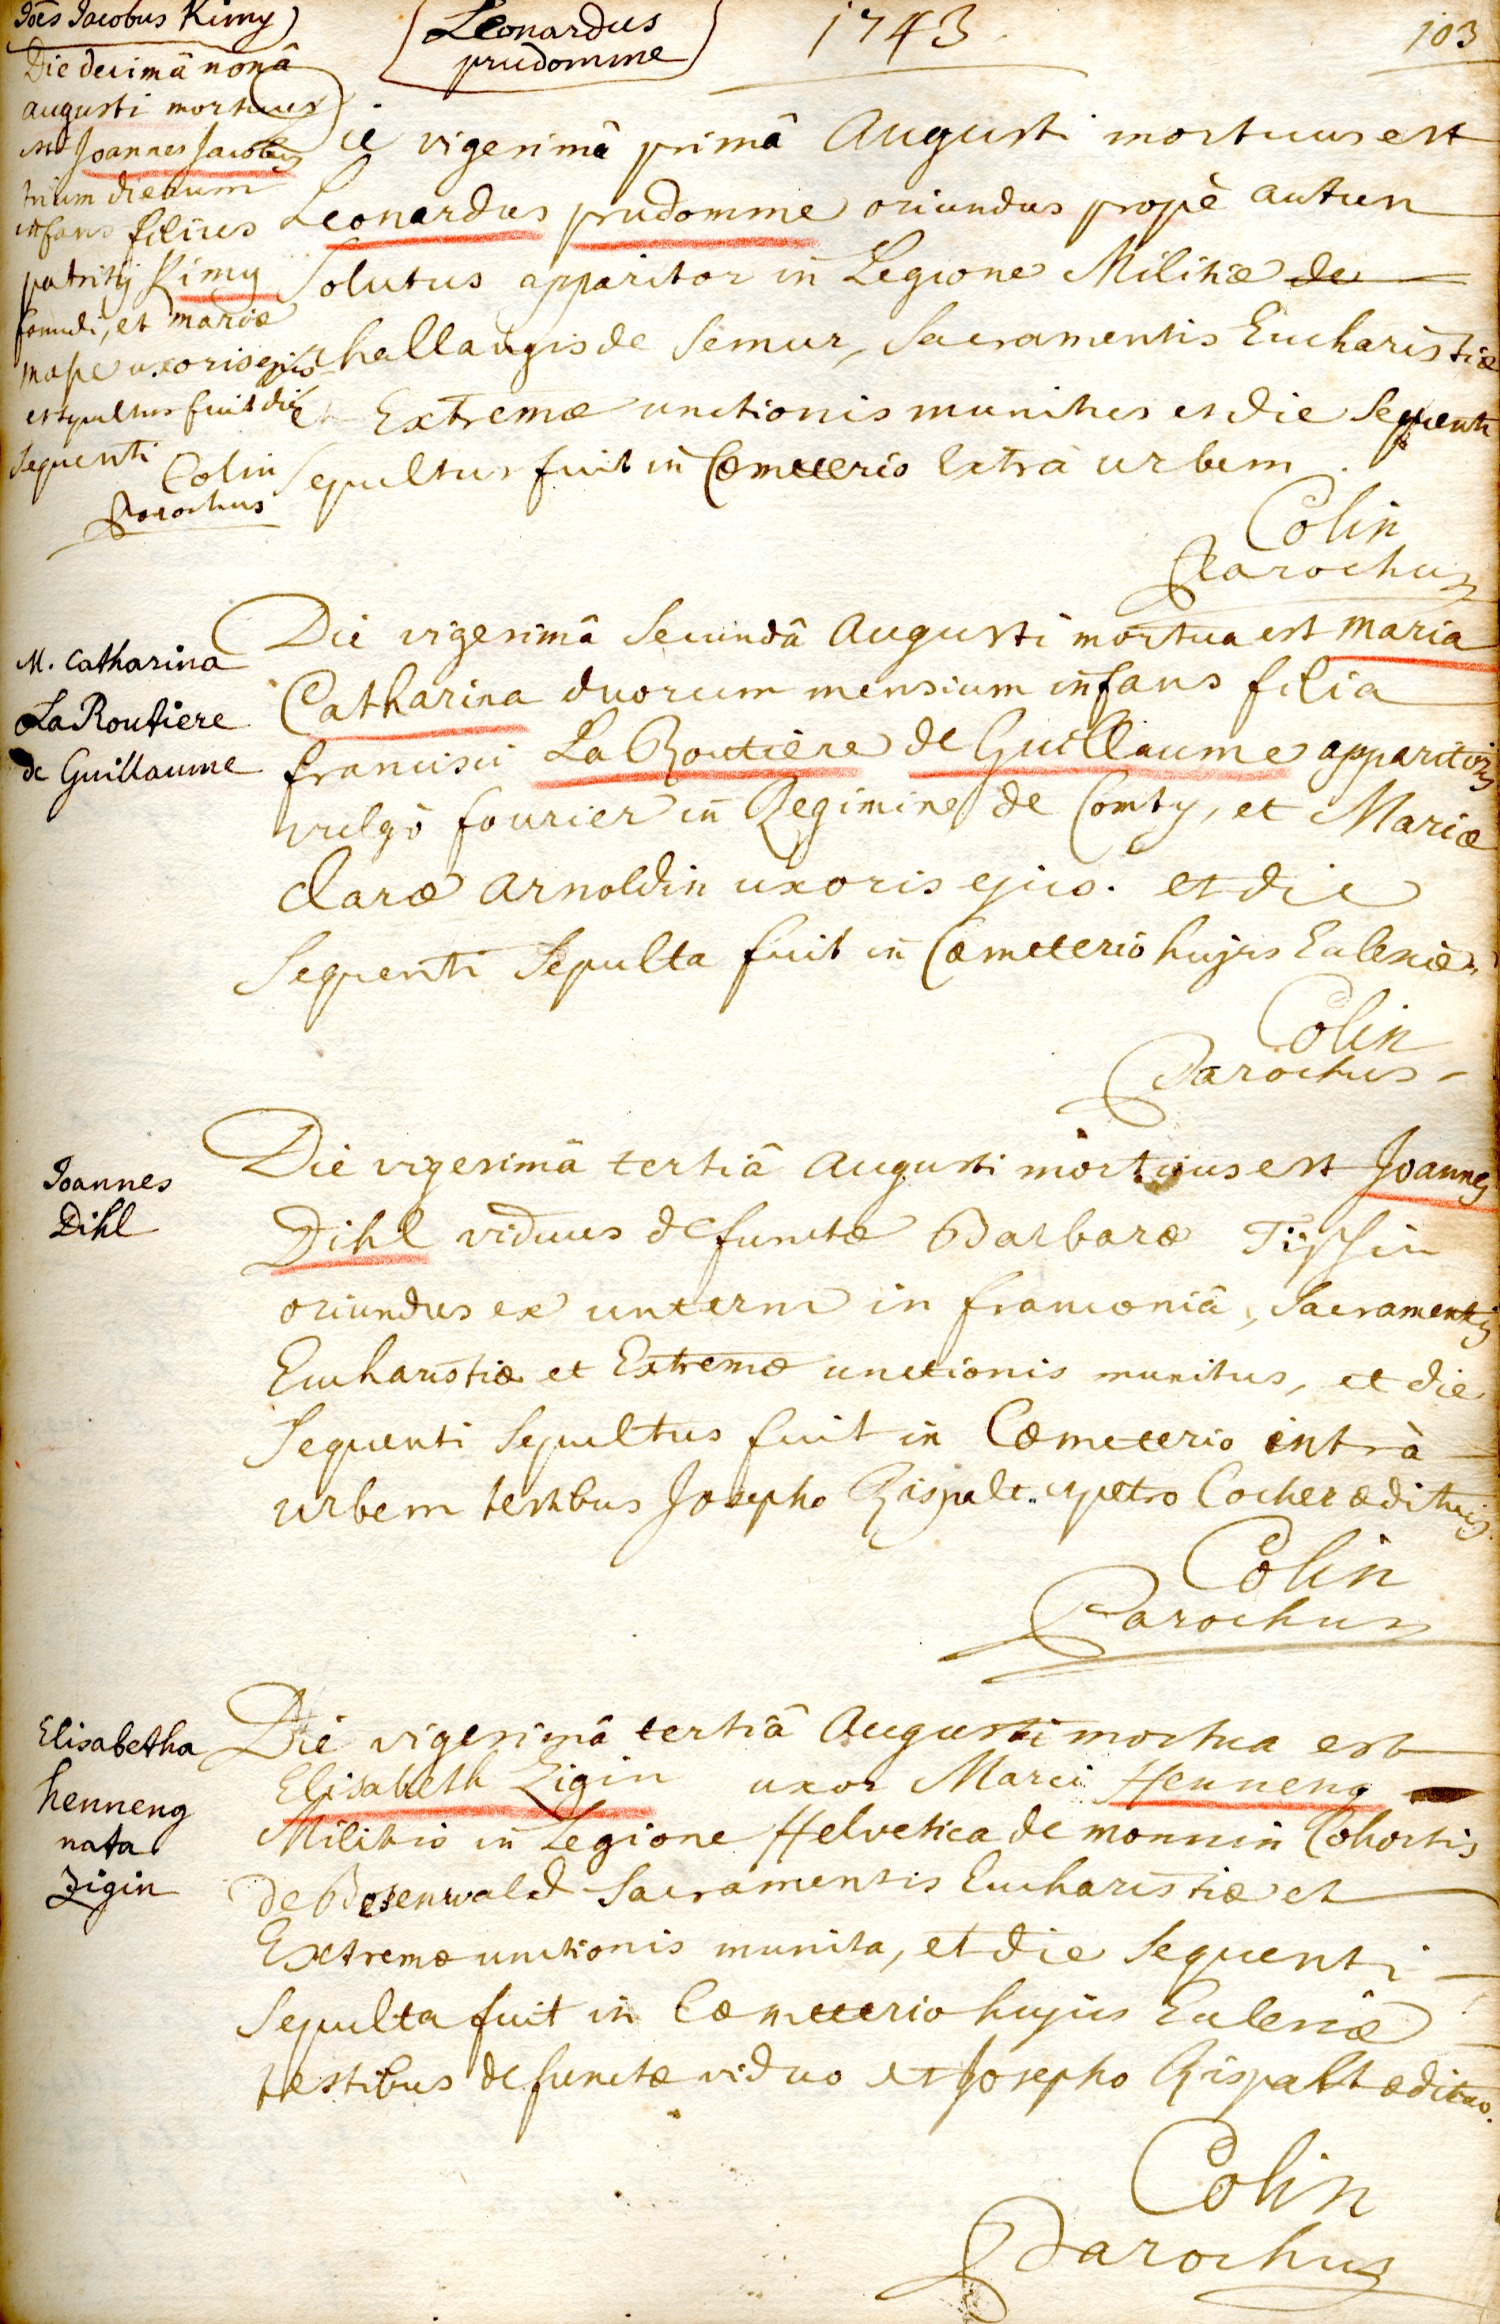 Joês Jacobus Kimy
Die decimâ nonâ
augusti mortuus
est Joannes Jacobus
trium dierum
infans filius
patritij Kimy
et mariæ
uxoris ejus
et sepultus fuit die
sequenti
Colin
Parochus
Leonardus
prudomme
1743
103
Die vigesimâ primâ Augusti mortuus est
Leonardus prudomme oriundus propè autun
Solutus apparitor in Legione Militiæ de
challangis de Semur, Sacramentis Eucharistiæ
et Extremæ unctionis munitus et die Sequenti
Sepultus fuit in Cœmeterio Extrà urbem.
Colin
Parochus
M. Catharina
La Routiere
de Guillaume
Die vigesimâ Secundâ Augusti mortua est Maria
Catharina duorum mensium infans filia
francisci La Routière de Guillaume apparitoris
vulgò fourier in Regimine de Comty, et Mariæ
Claræ Arnoldin uxoris ejus. et die
Sequenti Sepulta fuit in Cœmeterio hujus Eclesiæ.
Colin
Parochus
Joannes
Dihl
Die vigesimâ tertiâ Augusti mortuus est Joannes
Dihl viduus defunctæ Barbaræ
oriundus ex unterm in franconiâ, Sacramentis
Eucharistiæ et Extremæ unctionis munitus, et die
Sequenti Sepultus fuit in Cœmeterio intrà
urbem testibus Josepho Rispalt et petro Cocher ædituis.
Colin
Parochus
Elisabetha
henneng
nata
Zigin
Die vigesimâ tertiâ Augusti mortua est
Elisabeth Zigin uxor Marci Henneng
Militis in Legione Helvetica de monnin Cohortis
de Bosenwald Sacramentis Eucharistiæ et
Extremæ unctionis munita, et die Sequenti
Sepulta fuit in Cœmeterio hujus Eclesiæ
testibus defunctæ viduo et Josepho Rispalt ædituo.
Colin
Parochus